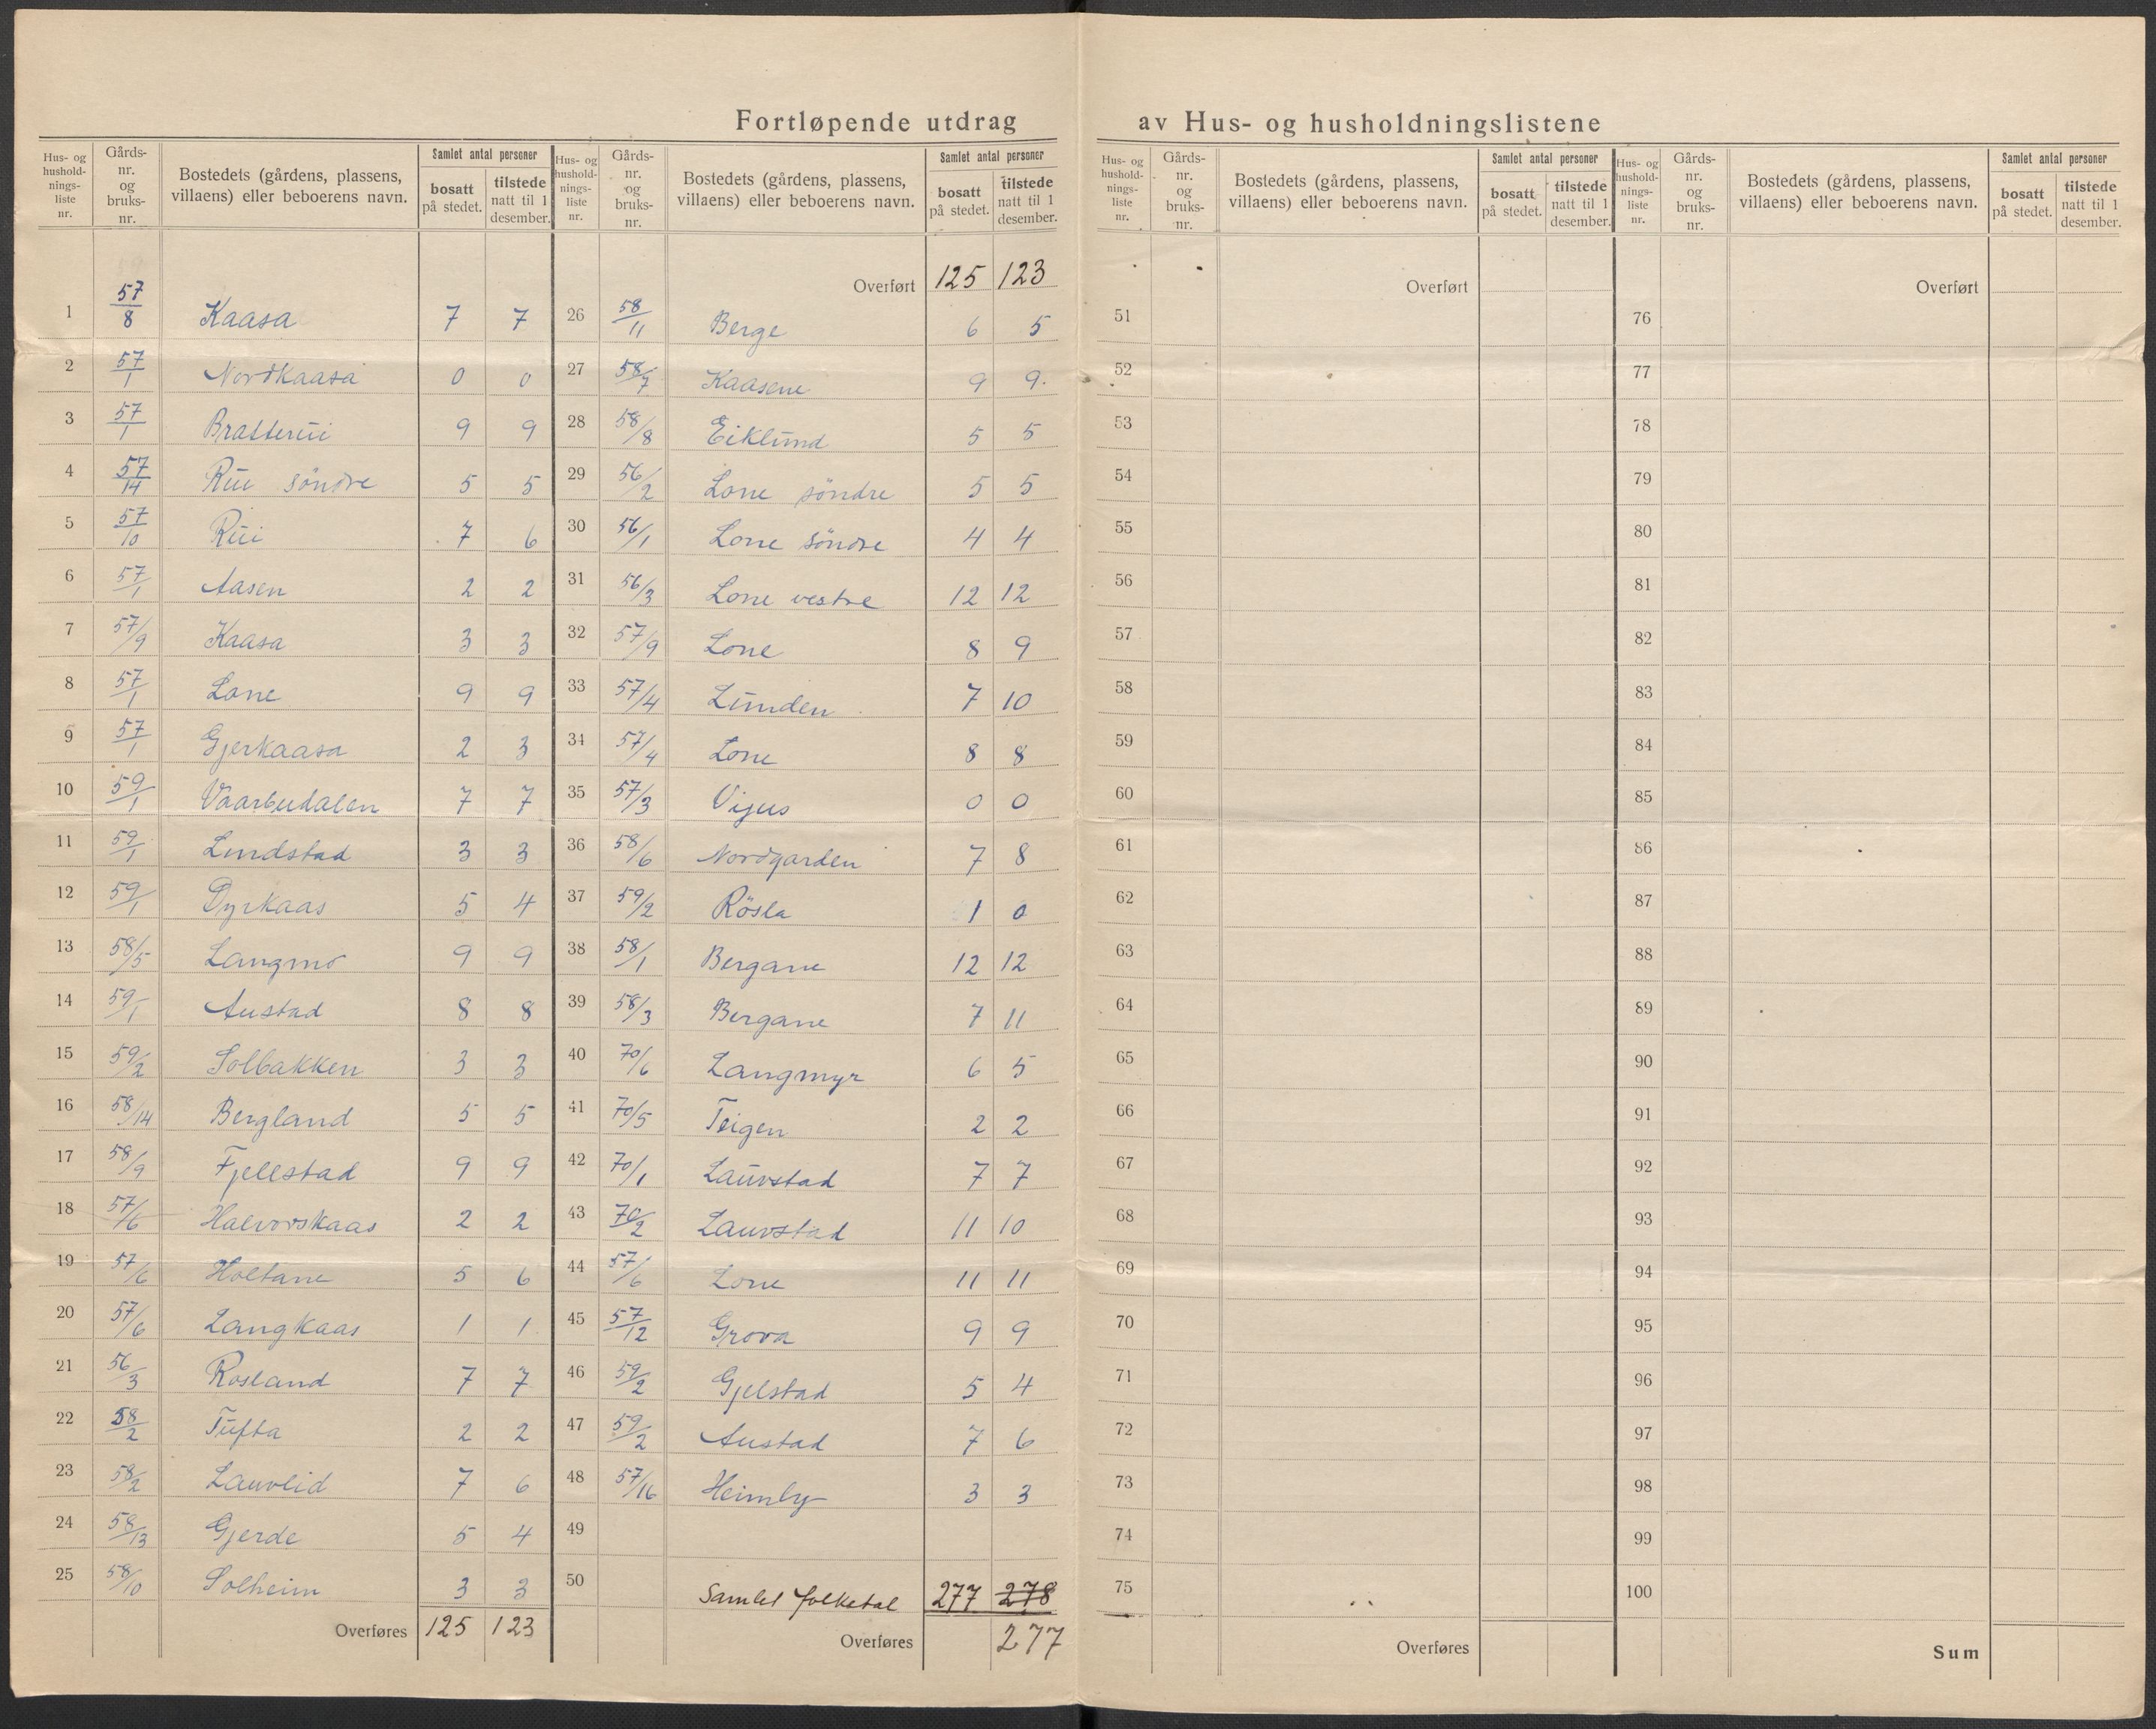 Fortløpende utdrag av Hus- og husholdningslistene
Hus- og hushold-nings-liste nr. | Gårds-nr. og bruks-nr. | Bostedets (gårdens, plassens, villaens) eller beboerens navn. | Samlet antal personer | bosatt på stedet. | tilstede natt til 1 desember.
1 57/8 Kaasa 7 7
2 57/1 Nordkaasa 0 0
3 57/1 Bratterui 9 9
4 57/14 Rui söndre 5 5
5 57/10 Rui 7 6
6 57/1 Aasen 2 2
7 57/9 Kaasa 3 3
8 57/1 Lone 9 9
9 57/1 Gjerkaasa 2 3
10 59/1 Vaarbudalen 7 7
11 59/1 Lundstad 3 3
12 59/1 Dyrkaas 5 4
13 58/5 Langmo 9 9
14 59/1 Austad 8 8
15 59/2 Solbakken 3 3
16 58/14 Bergland 5 5
17 58/9 Fjellstad 9 9
18 57/6 Halvorskaas 2 2
19 57/6 Holtane 5 6
20 57/6 Langkaas 1 1
21 56/3 Rosland 7 7
22 58/2 Tufta 2 2
23 58/2 Lauvlid 7 6
24 58/13 Gjerde 5 4
25 58/10 Solheim 3 3
Overføres 125 123
Hus- og hushold-nings-liste nr. | Gårds-nr. og bruks-nr. | Bostedets (gårdens, plassens, villaens) eller beboerens navn. | Samlet antal personer | bosatt på stedet. | tilstede natt til 1 desember.
Overført 125 123
26 58/11 Berge 6 5
27 58/7 Kaasene 9 9.
28 58/8 Eiklund 5 5
29 56/2 Lone söndre 5 5
30 56/1 Lone söndre 4 4
31 56/3 Lone vestre 12 12
32 57/9 Lone 8 9
33 57/4 Lunden 7 10
34 57/4 Lone 8 8
35 57/3 Vijus 0 0
36 58/6 Nordgarden 7 8
37 59/2 Rösla 1 0
38 58/1 Bergane 12 12
39 58/3 Bergane 7 11
40 70/6 Langmyr 6 5
41 70/5 Teigen 2 2
42 70/1 Lauvstad 7 7
43 70/2 Lauvstad 11 10
44 57/6 Lone 11 11
45 57/12 Grova 9 9
46 59/2 Gjelstad 5 4
47 59/2 Austad 7 6
48 57/16 Heimly 3 3
49
50 Samlet folketal 277 278
Overføres 277
Hus- og hushold-nings-liste nr. | Gårds-nr. og bruks-nr. | Bostedets (gårdens, plassens, villaens) eller beboerens navn. | Samlet antal personer | bosatt på stedet. | tilstede natt til 1 desember.
Overført
51
52
53
54
55
56
57
58
59
60
61
62
63
64
65
66
67
68
69
70
71
72
73
74
75
Overføres
Hus- og hushold-nings-liste nr. | Gårds-nr. og bruks-nr. | Bostedets (gårdens, plassens, villaens) eller beboerens navn. | Samlet antal personer | bosatt på stedet. | tilstede natt til 1 desember.
Overført
76
77
78
79
80
81
82
83
84
85
86
87
88
89
90
91
92
93
94
95
96
97
98
99
100
Sum